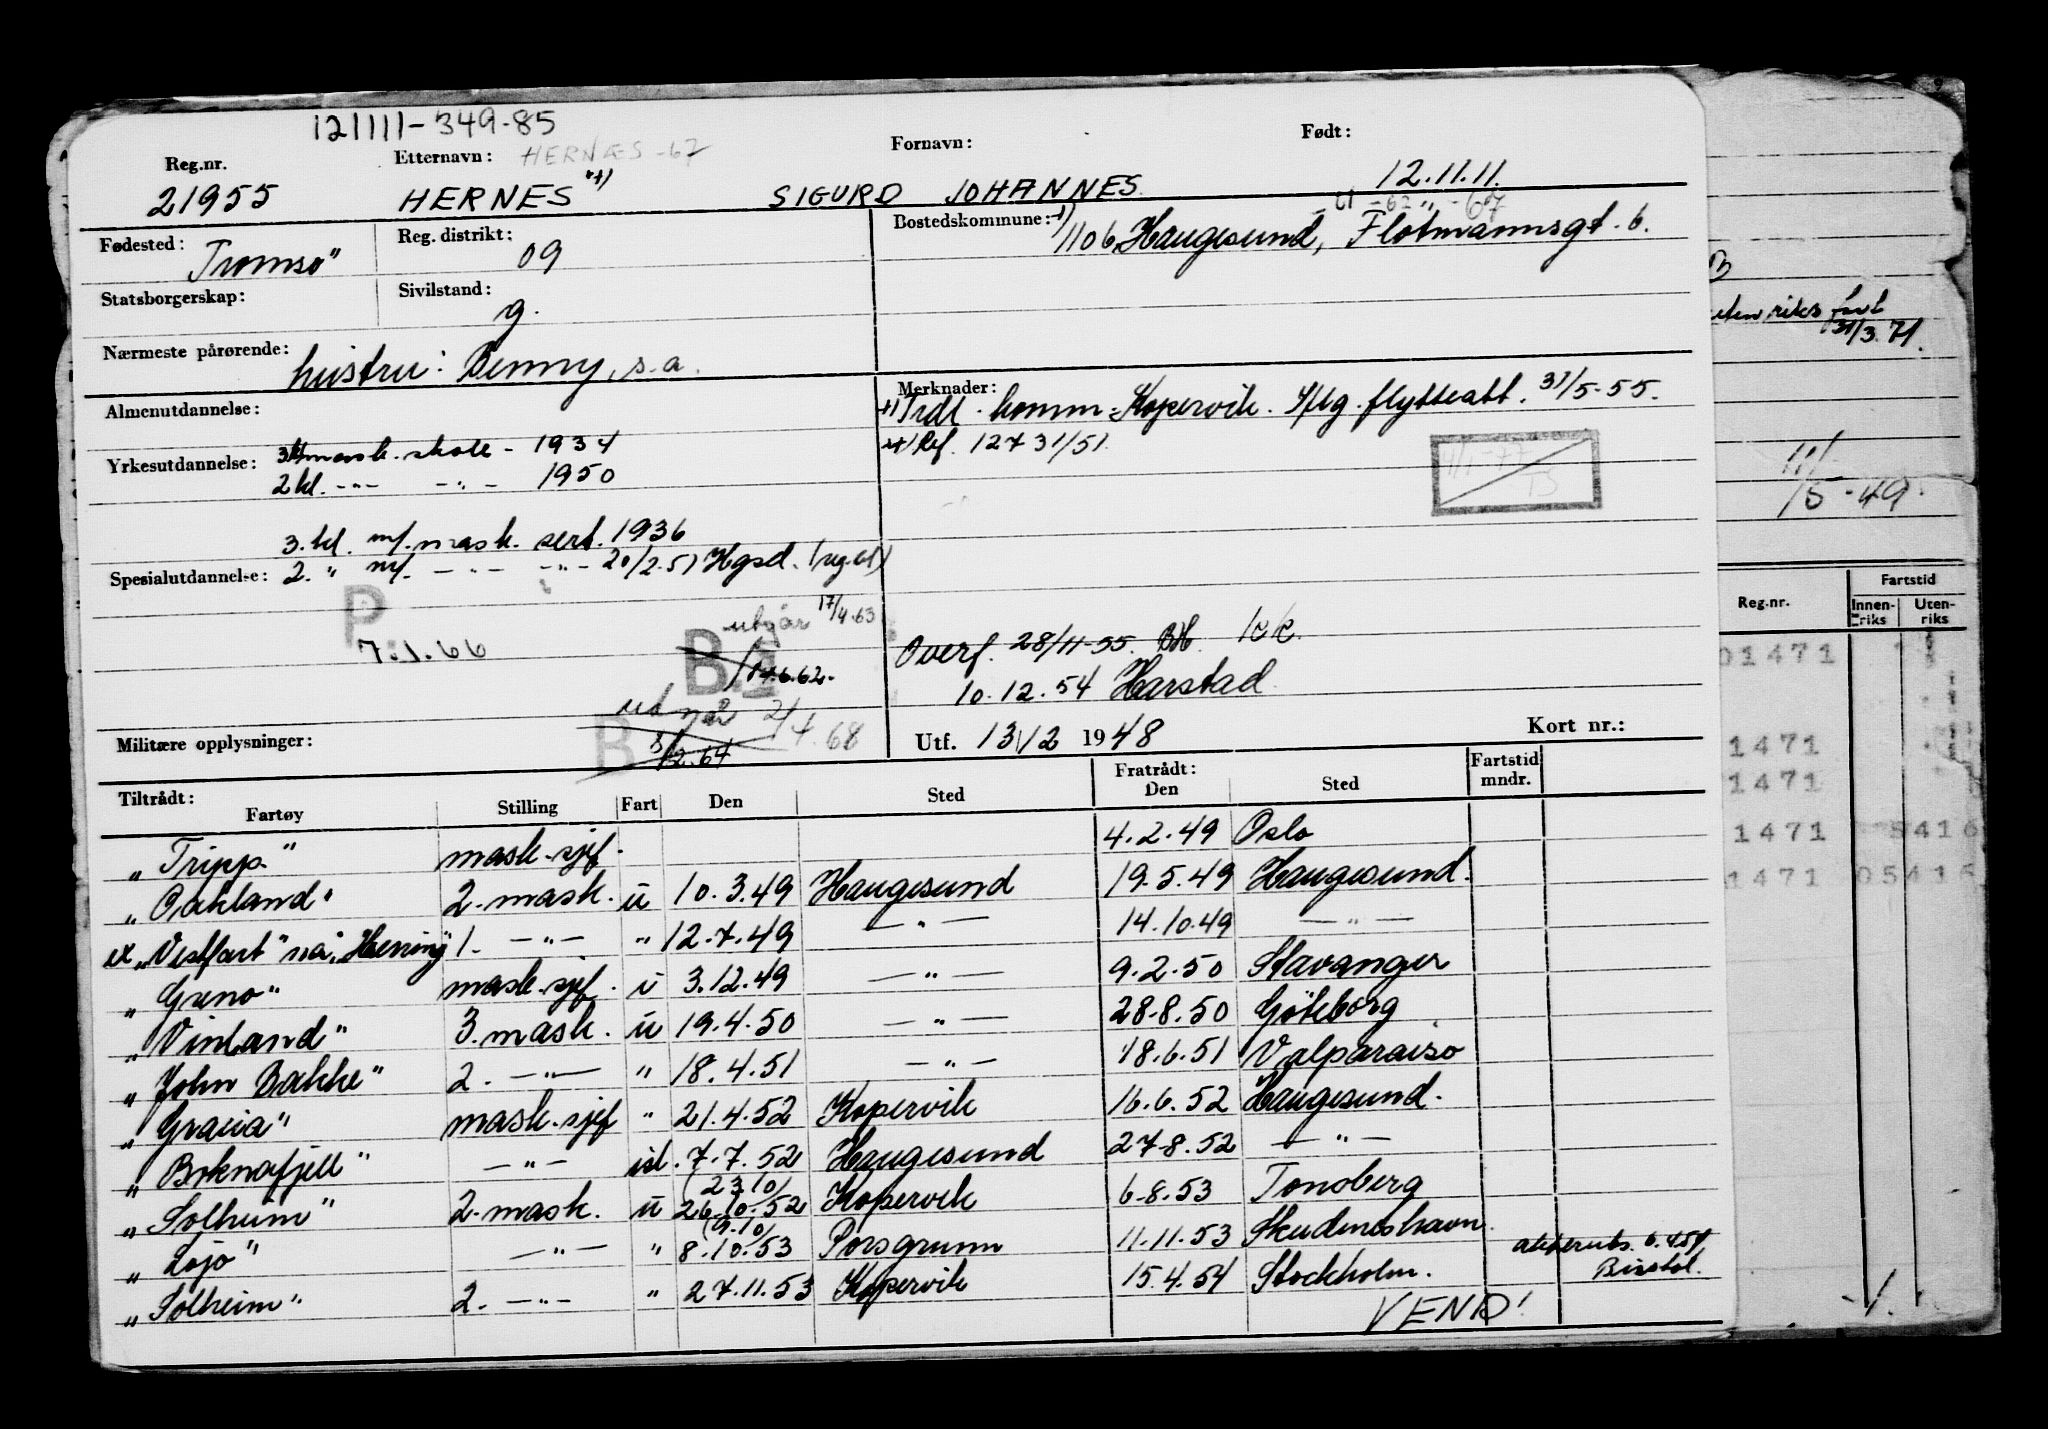 121111-349-85
Reg.nr. Etternavn: HERNÆS -67 Fornavn: Født:
21955 HERNES "+) SIGURD JOHANNES. 12.11.11.
61 -62 " -67
Fødested: Tromsø" Reg. distrikt: 09 Bostedskommune: +) 1106 Haugesund, Flotmannsgt. 6.
Statsborgerskap: Sivilstand: g.
Nærmeste pårørende: hustru: Benny, s.a.
Almenutdannelse:
Merknader: +) Tidl. komm: Kopervik. Iflg. flytteatt. 31/5-55.
++) Ref. 12731/51.
Yrkesutdannelse: mask. skole - 1934
2 kl. -"- -"- 1950
3. kl. m/. mask. sert. 1936
Spesialutdannelse: 2. " m/. -"- -"- 20/2.51 Hgsd. (reg.bl)
P
7.1.66
utgår 17/4.63
B.2
14.6.62.
utgår 2/4.68
B 8/2.64
Overf. 28/11-55. BH.
10.12.54 Harstad
Militære opplysninger:
Utf. 13/2 1948 Kort nr.:
Tiltrådt: Fratrådt: Fartstid mndr.
Fartøy Stilling Fart Den Sted Den Sted
"Tripp" mask.sjef. 4.2.49 Oslo
"Oakland" 2. mask. u 10.3.49 Haugesund 19.5.49 Haugesund.
ex "Vestfart" nå "Herring" 1. -"- " 12.7.49 -"- 14.10.49 -"-
"Greno" mask.sjef. u 3.12.49 -"- 9.2.50 Stavanger
"Vinland" 3. mask. u 19.4.50 -"- 28.8.50 Göteborg
"John Bakke" 2. -"- " 18.4.51 -"- 18.6.51 Valparaiso
"Gracia" mask.sjef " 21.4.52 Kopervik 16.6.52 Haugesund.
"Boknafjell" -"- isl. 7.7.52 Haugesund 27.8.52 -"-
(23.10)
"Solheim" 2. mask. u 26.10.52 Kopervik 6.8.53 Tønsberg
(9.10)
"Lojo" -"- " 8.10.53 Porsgrunn 11.11.53 Skudeneshavn
"Solheim" 2. -"- " 27.11.53 Kopervik 15.4.54 Stockholm.
6.4.54
Bristol.
VEND!
utenriks fart
31/3.71.
11/
15-49.
Reg.nr. Fartstid
Innenriks Utenriks
01471
1471
1471
1471 5416
1471 05416
-1.